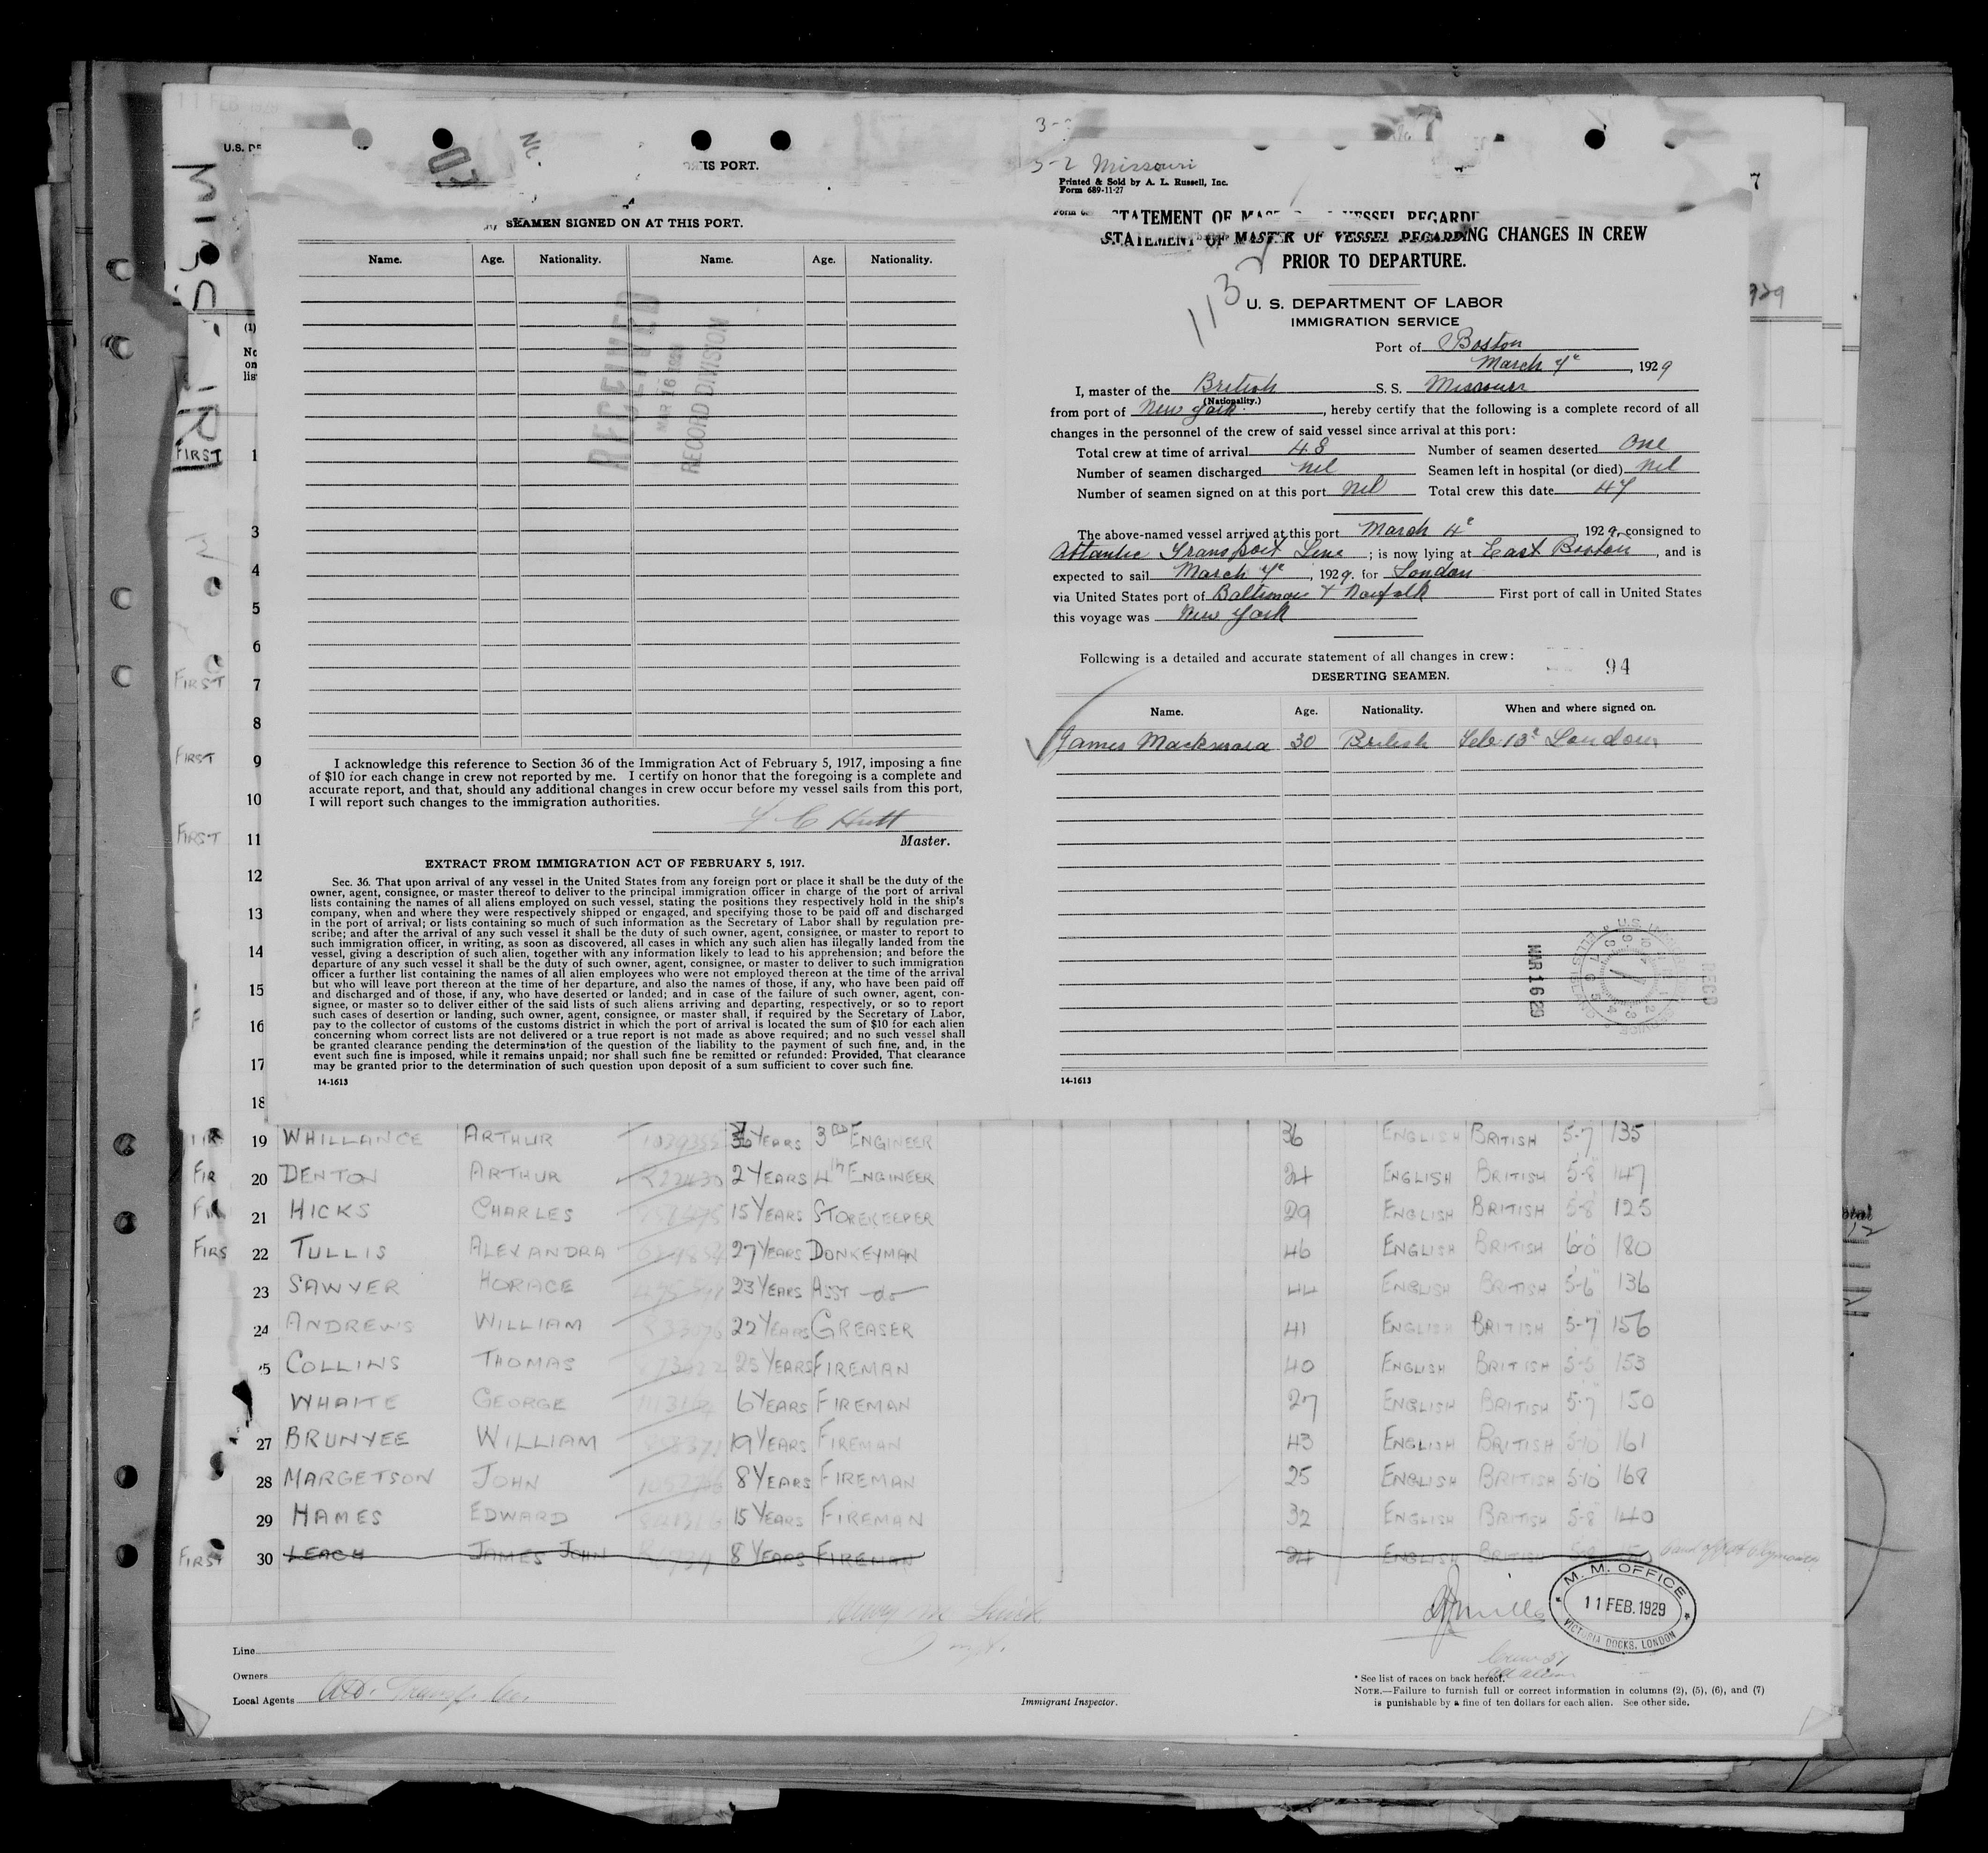 11 FEB 1929
MISSOURI
3-2 Missouri
Printed & Sold by A. L. Russell, Inc.
Form 689-11-27
THIS PORT.
SEAMEN SIGNED ON AT THIS PORT.
Name. Age. Nationality. Name. Age. Nationality.
RECEIVED
MAR 16 1929
RECORD DIVISION
I acknowledge this reference to Section 36 of the Immigration Act of February 5, 1917, imposing a fine
of $10 for each change in crew not reported by me. I certify on honor that the foregoing is a complete and
accurate report, and that, should any additional changes in crew occur before my vessel sails from this port,
I will report such changes to the immigration authorities.
Hutt
Master.
EXTRACT FROM IMMIGRATION ACT OF FEBRUARY 5, 1917.
Sec. 36. That upon arrival of any vessel in the United States from any foreign port or place it shall be the duty of the
owner, agent, consignee, or master thereof to deliver to the principal immigration officer in charge of the port of arrival
lists containing the names of all aliens employed on such vessel, stating the positions they respectively hold in the ship's
company, when and where they were respectively shipped or engaged, and specifying those to be paid off and discharged
in the port of arrival; or lists containing so much of such information as the Secretary of Labor shall by regulation pre-
scribe; and after the arrival of any such vessel it shall be the duty of such owner, agent, consignee, or master to report to
such immigration officer, in writing, as soon as discovered, all cases in which any such alien has illegally landed from the
vessel, giving a description of such alien, together with any information likely to lead to his apprehension; and before the
departure of any such vessel it shall be the duty of such owner, agent, consignee, or master to deliver to such immigration
officer a further list containing the names of all alien employees who were not employed thereon at the time of the arrival
but who will leave port thereon at the time of her departure, and also the names of those, if any, who have been paid off
and discharged and of those, if any, who have deserted or landed; and in case of the failure of such owner, agent, con-
signee, or master so to deliver either of the said lists of such aliens arriving and departing, respectively, or so to report
such cases of desertion or landing, such owner, agent, consignee, or master shall, if required by the Secretary of Labor,
pay to the collector of customs of the customs district in which the port of arrival is located the sum of $10 for each alien
concerning whom correct lists are not delivered or a true report is not made as above required; and no such vessel shall
be granted clearance pending the determination of the question of the liability to the payment of such fine, and, in the
event such fine is imposed, while it remains unpaid; nor shall such fine be remitted or refunded: Provided, That clearance
may be granted prior to the determination of such question upon deposit of a sum sufficient to cover such fine.
14-1613
STATEMENT OF MASTER OF VESSEL REGARDING CHANGES IN CREW
PRIOR TO DEPARTURE.
113
U. S. DEPARTMENT OF LABOR
IMMIGRATION SERVICE
Port of Boston
March 7e, 1929
I, master of the British S. S. Missouri
(Nationality.)
from port of New York, hereby certify that the following is a complete record of all
changes in the personnel of the crew of said vessel since arrival at this port:
Total crew at time of arrival 48 Number of seamen deserted One
Number of seamen discharged nil Seamen left in hospital (or died) nil
Number of seamen signed on at this port nil Total crew this date 47
The above-named vessel arrived at this port March 4e, 1929, consigned to
Atlantic Transport Line; is now lying at East Boston, and is
expected to sail March 7e, 1929. for London
via United States port of Baltimore & Norfolk First port of call in United States
this voyage was New York
Following is a detailed and accurate statement of all changes in crew:
94
DESERTING SEAMEN.
Name. Age. Nationality. When and where signed on.
James 30 British Feb 13e London
MAR 16 29
RECD
14-1613
FIRST 1
3
4
5
6
FIRST 7
8
FIRST 9
10
FIRST 11
12
13
14
15
16
17
18
19 WHILLANCE ARTHUR 36 YEARS 3RD ENGINEER 36 ENGLISH BRITISH 5-7 135
20 DENTON ARTHUR 2 YEARS 4th ENGINEER 24 ENGLISH BRITISH 5-8 147
21 HICKS CHARLES 15 YEARS STOREKEEPER 29 ENGLISH BRITISH 5-8 125
FIRS 22 TULLIS ALEXANDRA 27 YEARS DONKEYMAN 46 ENGLISH BRITISH 6-0 180
23 SAWYER HORACE 23 YEARS ASST -do- 44 ENGLISH BRITISH 5-6 136
24 ANDREWS WILLIAM 22 YEARS GREASER 41 ENGLISH BRITISH 5-7 156
25 COLLINS THOMAS 25 YEARS FIREMAN 40 ENGLISH BRITISH 5-5 153
WHAITE GEORGE 6 YEARS FIREMAN 27 ENGLISH BRITISH 5-7 150
27 BRUNYEE WILLIAM 19 YEARS FIREMAN 43 ENGLISH BRITISH 5-10 161
28 MARGETSON JOHN 8 YEARS FIREMAN 25 ENGLISH BRITISH 5-10 168
29 HAMES EDWARD 15 YEARS FIREMAN 32 ENGLISH BRITISH 5-8 140
FIRST 30 LEACH JAMES JOHN 8 YEARS FIREMAN 24 ENGLISH BRITISH
M. M. OFFICE
11 FEB. 1929
VICTORIA DOCKS, LONDON
Line
Owners
Local Agents
Immigrant Inspector.
* See list of races on back hereof.
NOTE.—Failure to furnish full or correct information in columns (2), (5), (6), and (7)
is punishable by a fine of ten dollars for each alien. See other side.